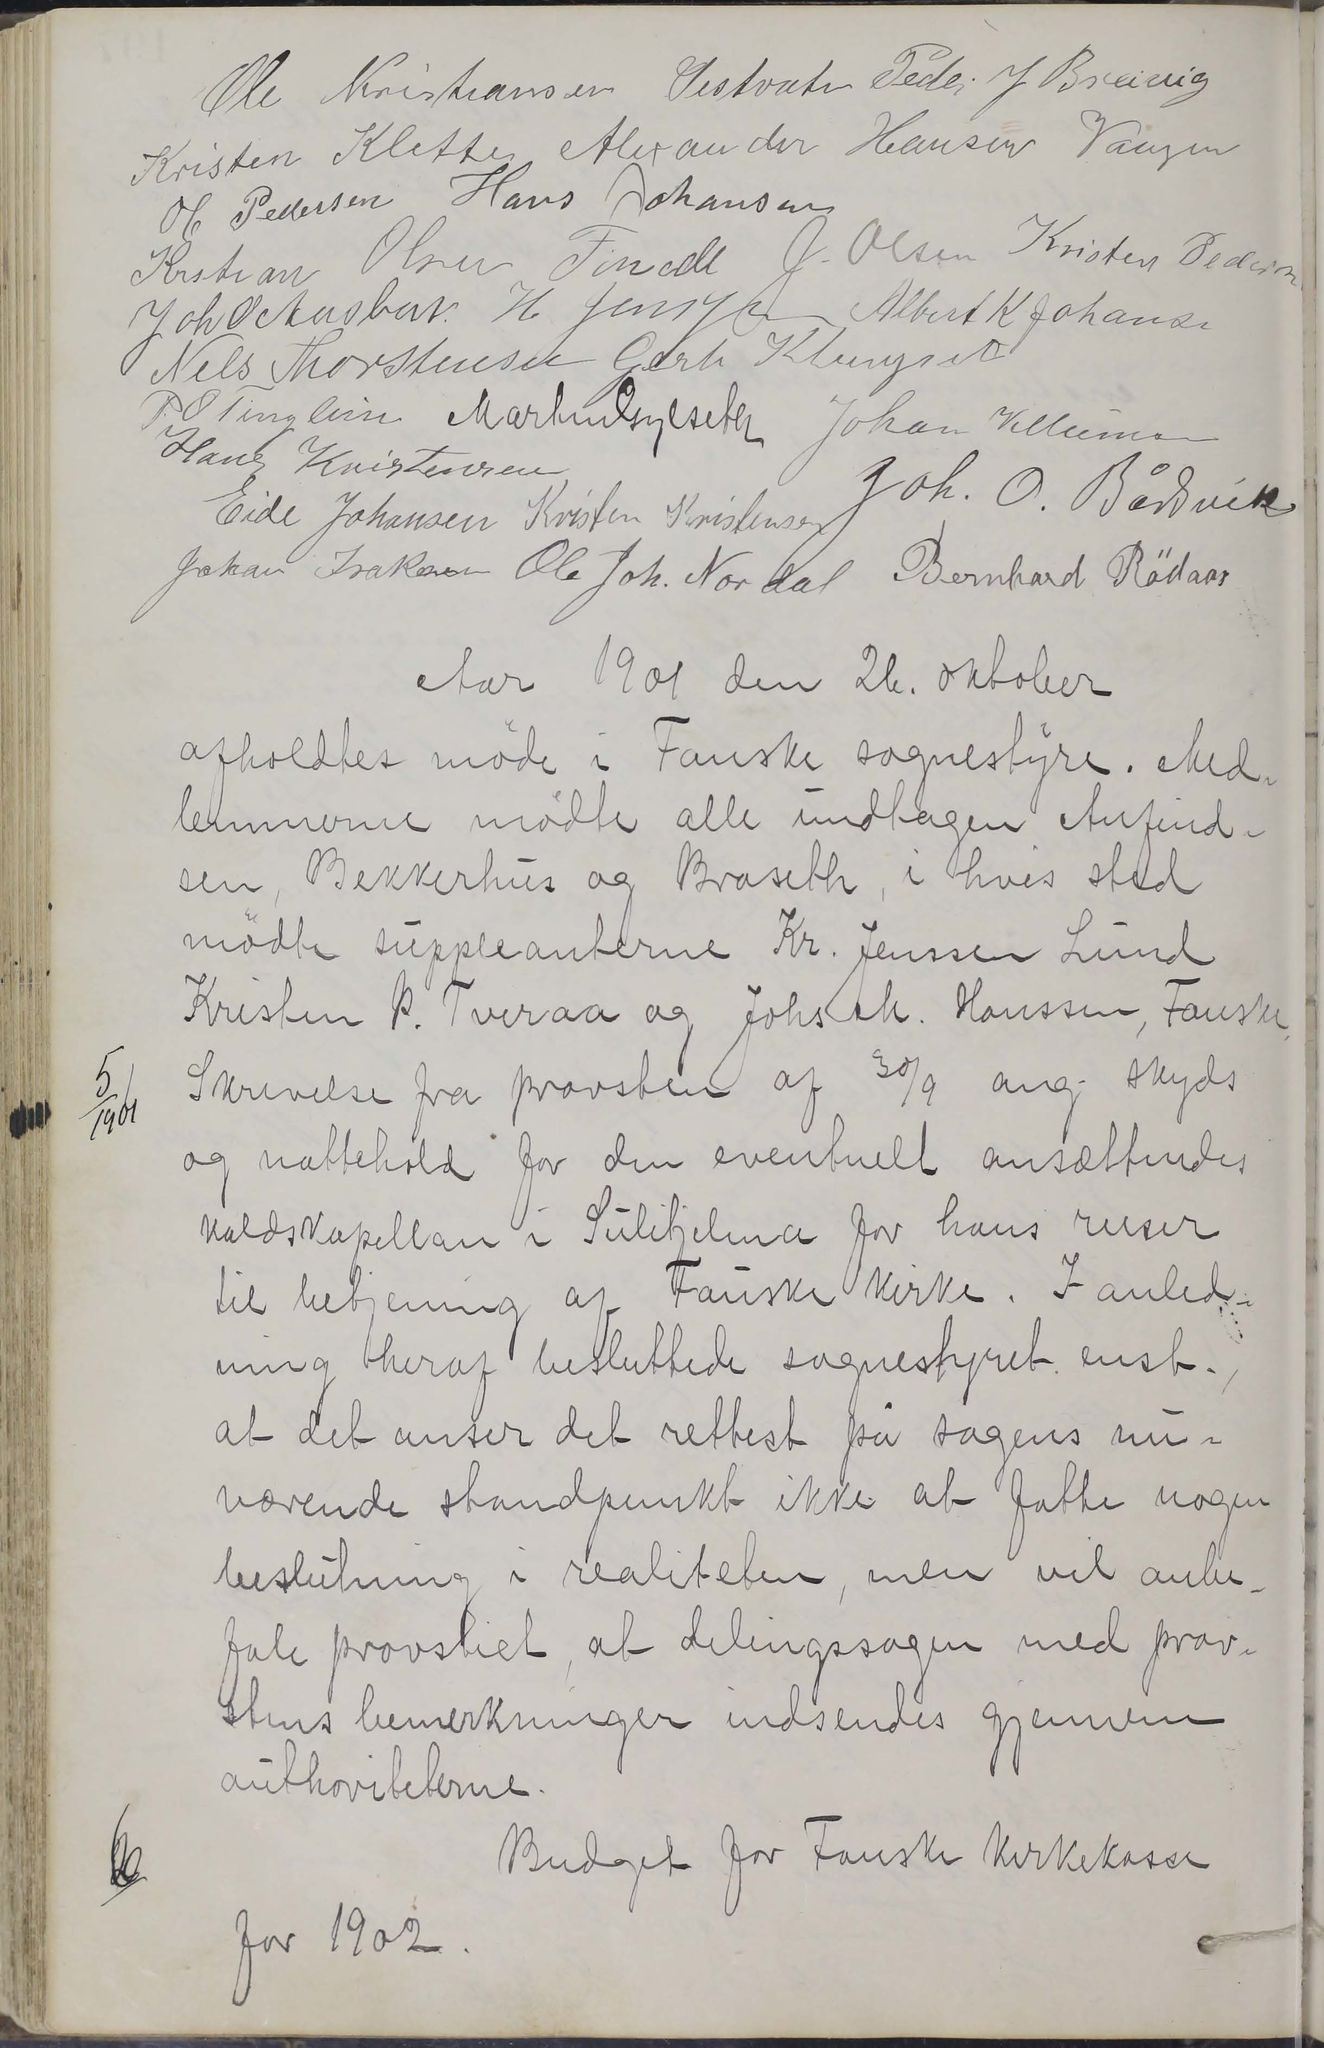 Ole Kristiansen Vestvatn Peder J Breivig
Kristen Klette Alexander Hansen Vangen
Ol Pedersen Hans Johansen
Krstian Olsen Finedl J. Olsen Kristen Pedersen
Joh Aasbak H Jenssen Albert K Johansen
Nels Thorstensen Gerh Klungset
P. O Tinglein Martin Johan Vellumsen
Hans Kristensen
Eide Johansen Kristen Kristensen Joh. O. Bådsvik
Johan Isaksen Ole Joh. Nordal Bernhard Rödaas
Aar 1901 den 26. oktober
afholdtes möde i Fauske sognestyre. Med-
lemmerne mödte alle undtagen Anfind-
sen, Bekkerhus og Braseth, i hvis sted
mödte suppleanterne Kr. Jenssen Lund
Kristen P. Tveraa og Johs M. Hanssen, Fauske.
5/1901 Skrivelse fra provsten af 30/9 ang. skyds
og nattehold for den eventuelt ansættendes
kaldskapellan i Sulitjelma for hans reiser
til betjening af Fauske kirke. I anled-
ning heraf besluttede sognestyret enst.,
at det anser det rettest på sagens nu-
værende standpunkt ikke at fatte nogen
beslutning i realiteten, men vil anbe-
fale provstiet, at delingssagen med prov-
stens bemerkninger indsendes gjennem
authoriteterne.
Budget for Fauske kirkekasse
for 1902.